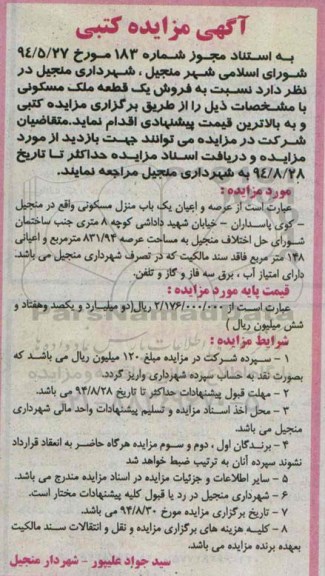 آگهی مزایده کتبی
به استناد مجوز شماره ۱۸۳ مورخ ۹۴/۵/۲۷
شورای اسلامی شهر منجیل ، شهرداری منجیل در
نظر دارد نسبت به فروش یک قطعه ملک مسکونی
با مشخصات ذیل را از طریق برگزاری مزایده کتبی
و به بالاترین قیمت پیشنهادی اقدام نماید.متقاضیان
شرکت در مزایده می توانند جهت بازدید از مورد
مزایده و دریافت اسناد مزایده حداکثر تا تاریخ
۹۴/۸/۲۸ به شهرداری منجیل مراجعه نمایند.
مورد مزایده :
عبارت است از عرصه و اعیان یک باب منزل مسکونی واقع در منجیل
- کوی پاسداران - خیابان شهید داداشی کوچه ۸ متری جنب ساختمان
شورای حل اختلاف منجیل به مساحت عرصه ۸۳۱/۹۴ مترمربع و اعیانی
۱۴۸ متر مربع فاقد سند مالکیت که در تصرف شهرداری منجیل می باشد.
دارای امتیاز آب ، برق سه فاز و گاز و تلفن.
قیمت پایه مورد مزایده :
عبارت است از ۲/۱۷۶/۰۰۰/۰۰۰ ریال(دو میلیارد و یکصد وهفتاد و
شش میلیون ریال )
شرایط مزایده :
۱ - سپرده شرکت در مزایده مبلغ ۱۲۰ میلیون ریال می باشد که
بصورت نقد به حساب سپرده شهرداری واریز گردد.
۲ - مهلت قبول پیشنهادات حداکثر تا تاریخ ۹۴/۸/۲۸ می باشد.
۳ - محل اخذ اسناد مزایده و تسلیم پیشنهادات واحد مالی شهرداری
منجیل می باشد.
۴ - برندگان اول ، دوم و سوم مزایده هرگاه حاضر به انعقاد قرارداد
نشوند سپرده آنان به ترتیب ضبط خواهد شد
۵ - سایر اطلاعات و جزئیات مزایده در اسناد مزایده مندرج می باشد.
۶ - شهرداری منجیل در رد یا قبول کلیه پیشنهادات مختار است.
۷ - تاریخ برگزاری مزایده مورخ ۹۴/۸/۳۰ می باشد.
۸ - کلیه هزینه های برگزاری مزایده و نقل و انتقالات سند مالکیت
بعهده برنده مزایده می باشد.
سید جواد علیپور - شهردار منجیل